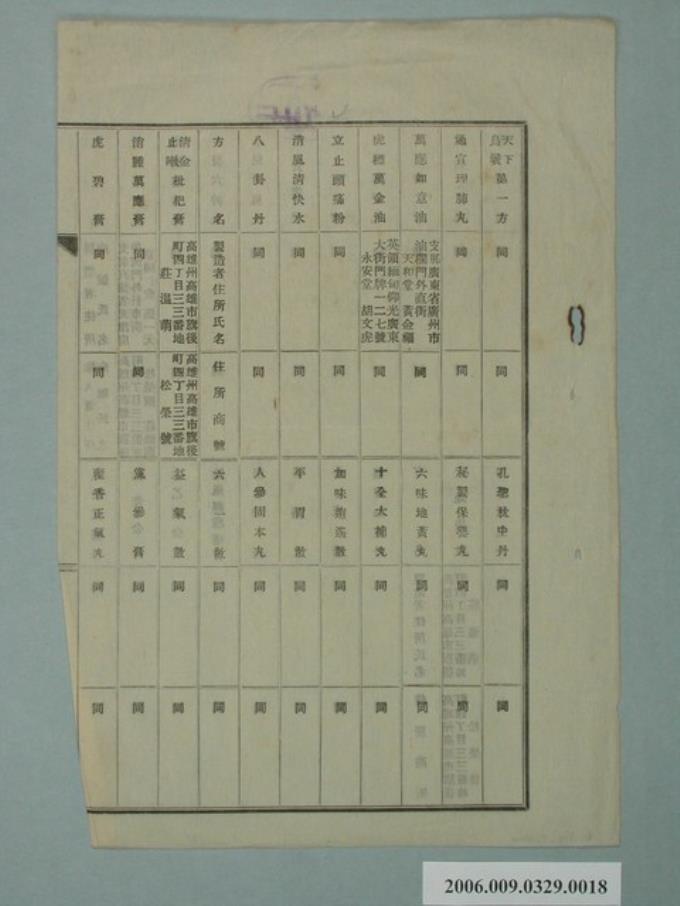 天下烏號第一方 同 同 孔聖枕中丹 同 同
通宣理肺丸 同 同 秘製保嬰丸 同 同
萬應如意油 支那廣東省廣州市
油欄門外直街
天和堂 黃金福 同 六味地黃丸 同 同
虎標萬金油 英領緬甸仰光廣東
大街門牌一二七號
永安堂 胡文虎 同 十全大補丸 同 同
立止頭痛粉 同 同 加味逍遙散 同 同
清風清快水 同 同 平胃散 同 同
八卦丹 同 同 人參固本丸 同 同
方名 製造者住所氏名 住所商號 六一散 同 同
清金止嗽枇杷膏 高雄州高雄市旗後
町四丁目三三番地
莊温萌 高雄州高雄市旗後
町四丁目三三番地
松榮號 益氣散 同 同
消腫萬應膏 同 同 黨參膏 同 同
虎碧膏 同 同 藿香正氣丸 同 同
2006.009.0329.0018